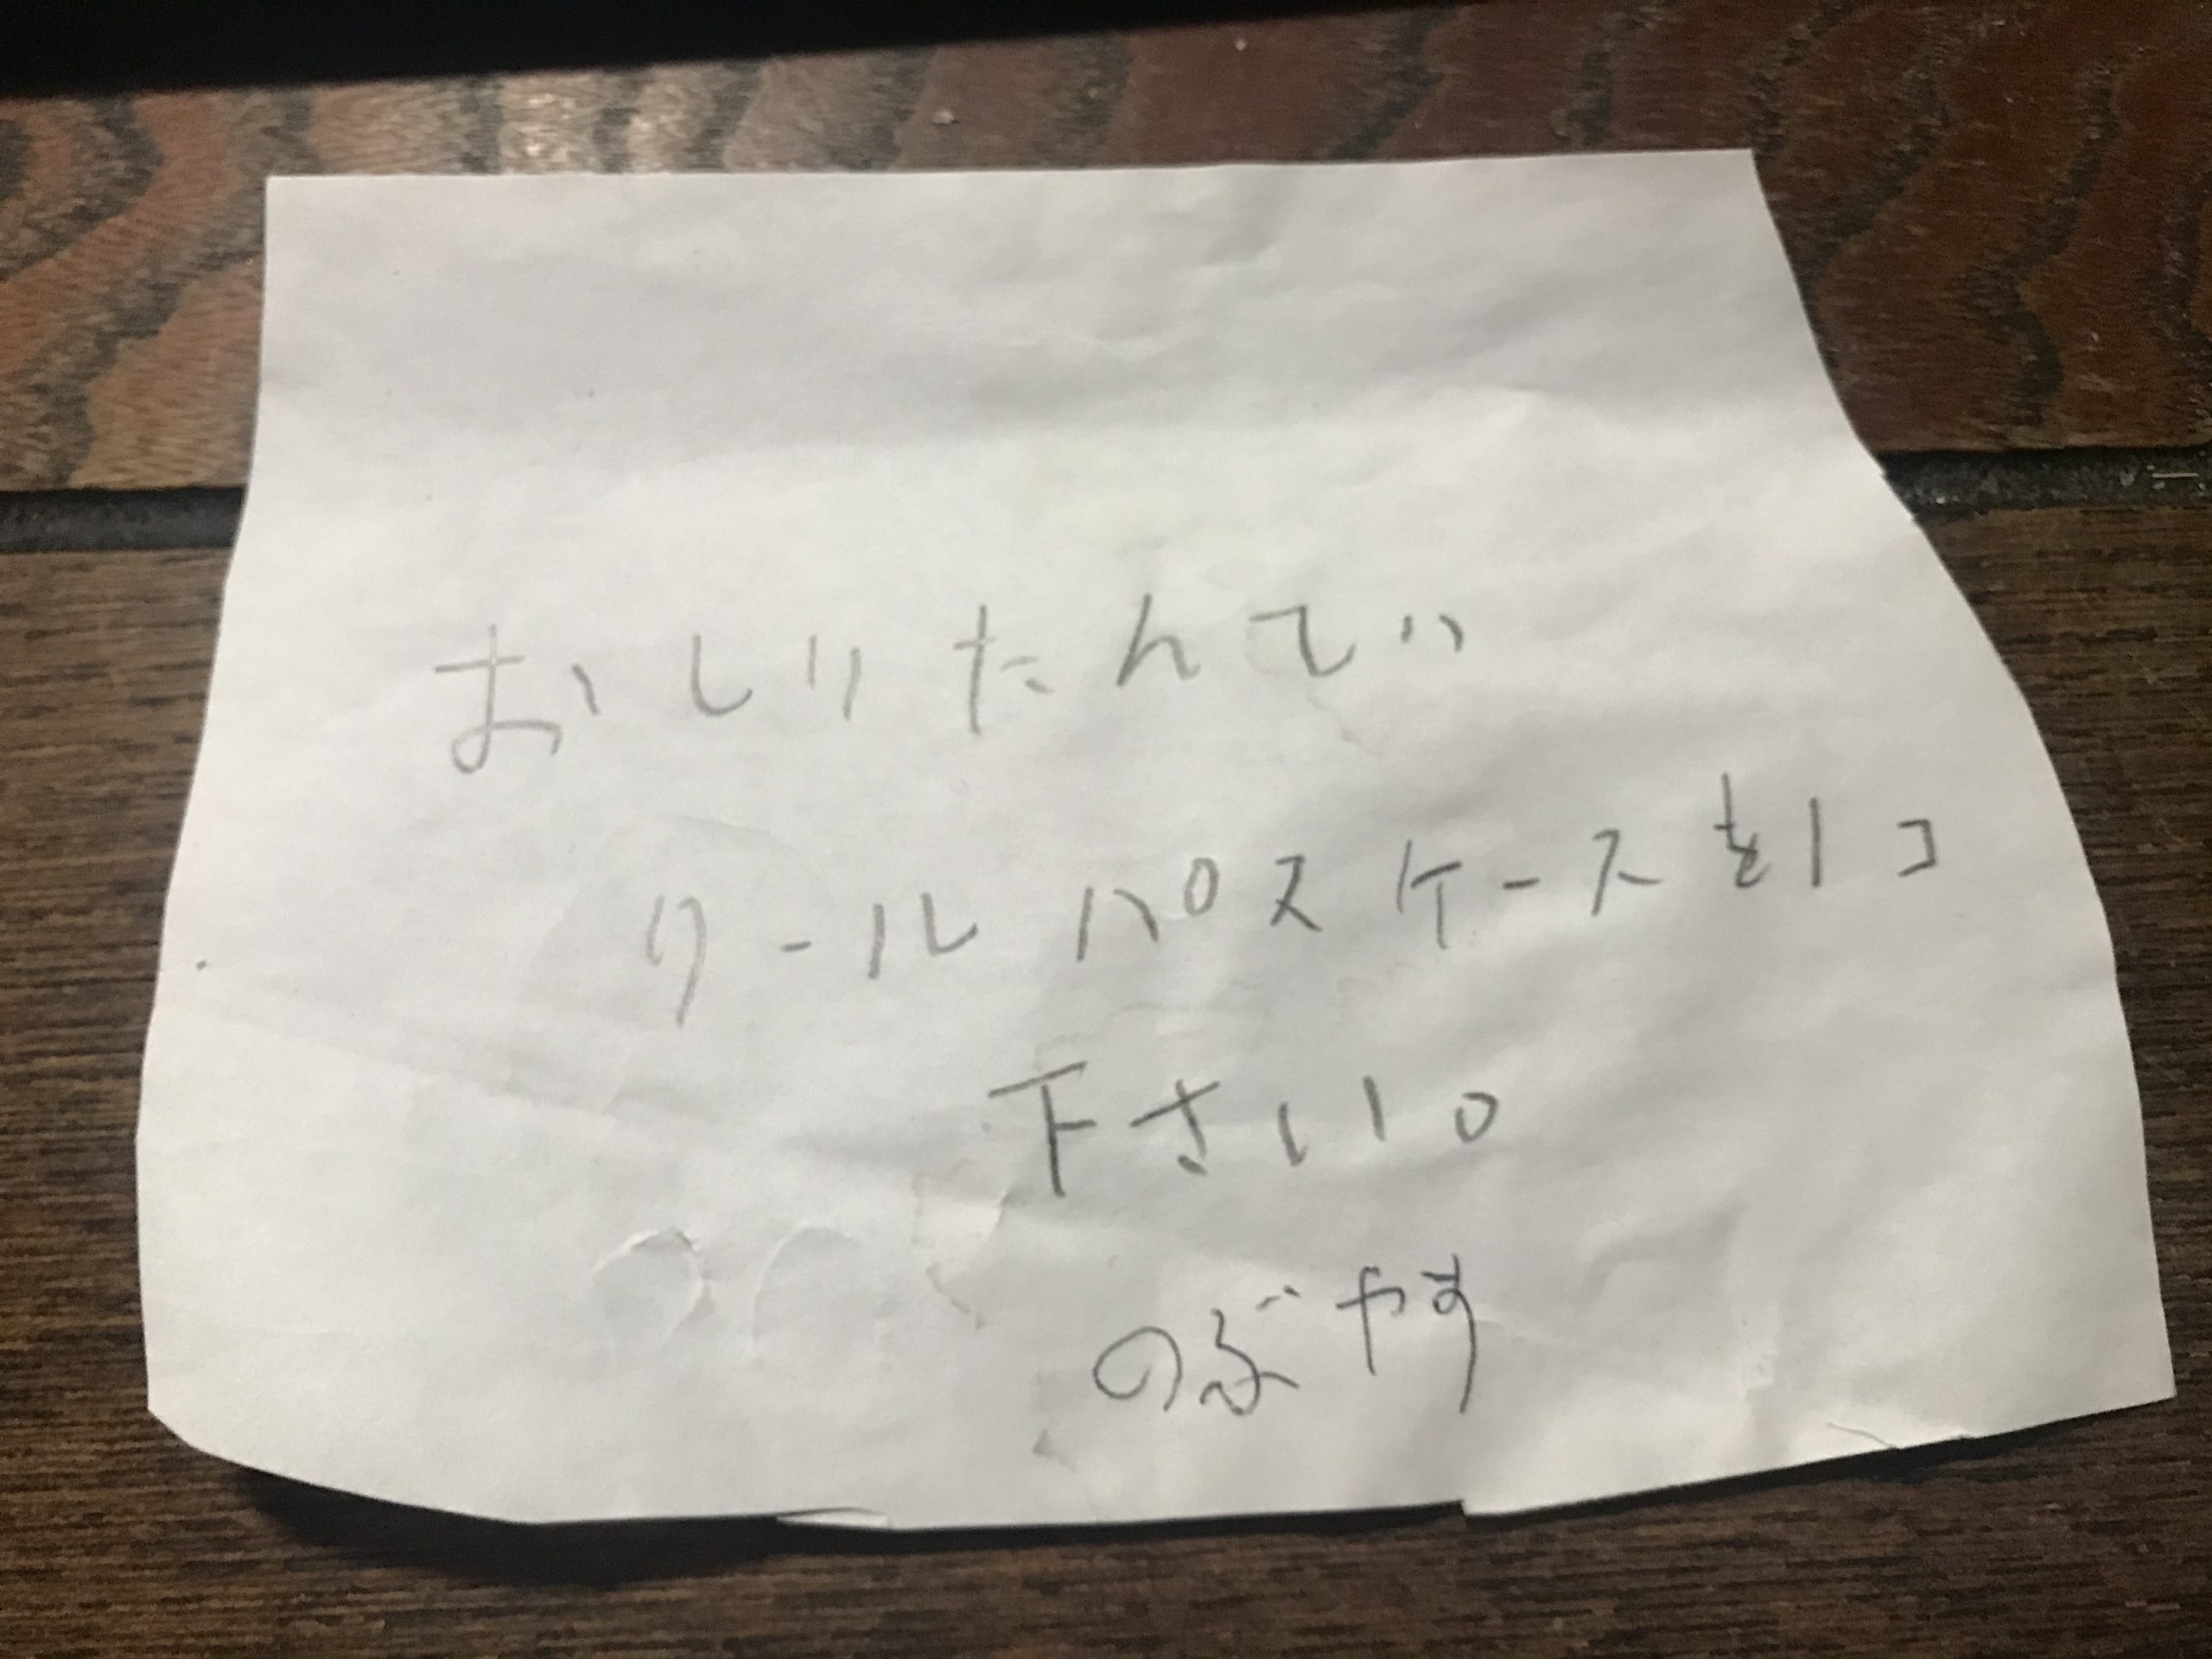 おしりたんてい
リールパスケースを1コ
下さい。
のぶやす